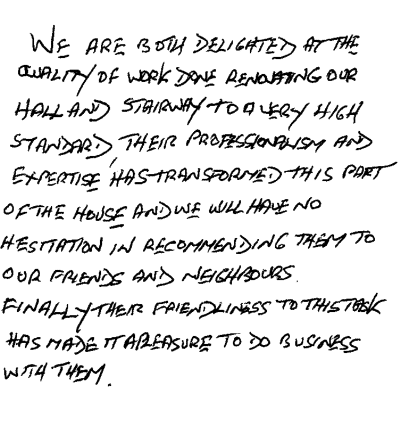 WE ARE BOTH DELIGHTED AT THE
QUALITY OF WORK DONE RENOVATING OUR
HALL AND STAIRWAY TO A VERY HIGH
STANDARD, THEIR PROFESSIONALISM AND
EXPERTISE HAS TRANSFORMED THIS PART
OF THE HOUSE AND WE WILL HAVE NO
HESITATION IN RECOMMENDING THEM TO
OUR FRIENDS AND NEIGHBOURS.
FINALLY THEIR FRIENDLINESS TO THIS TASK
HAS MADE IT A PLEASURE TO DO BUSINESS
WITH THEM.